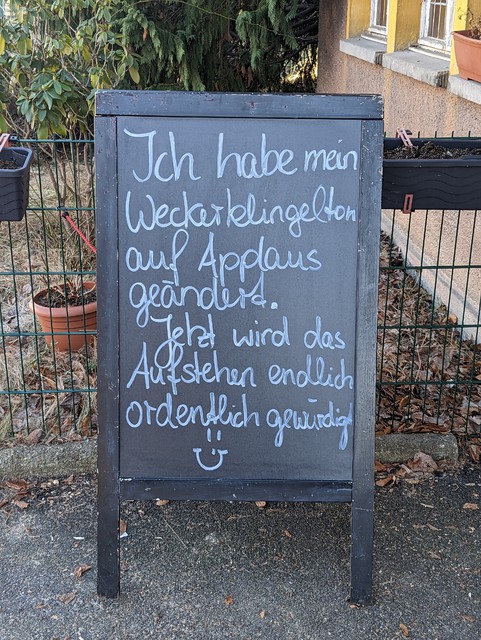 Ich habe mein
Weckerklingelton
auf Applaus
geändert.
Jetzt wird das
Aufstehen endlich
ordentlich gewürdigt